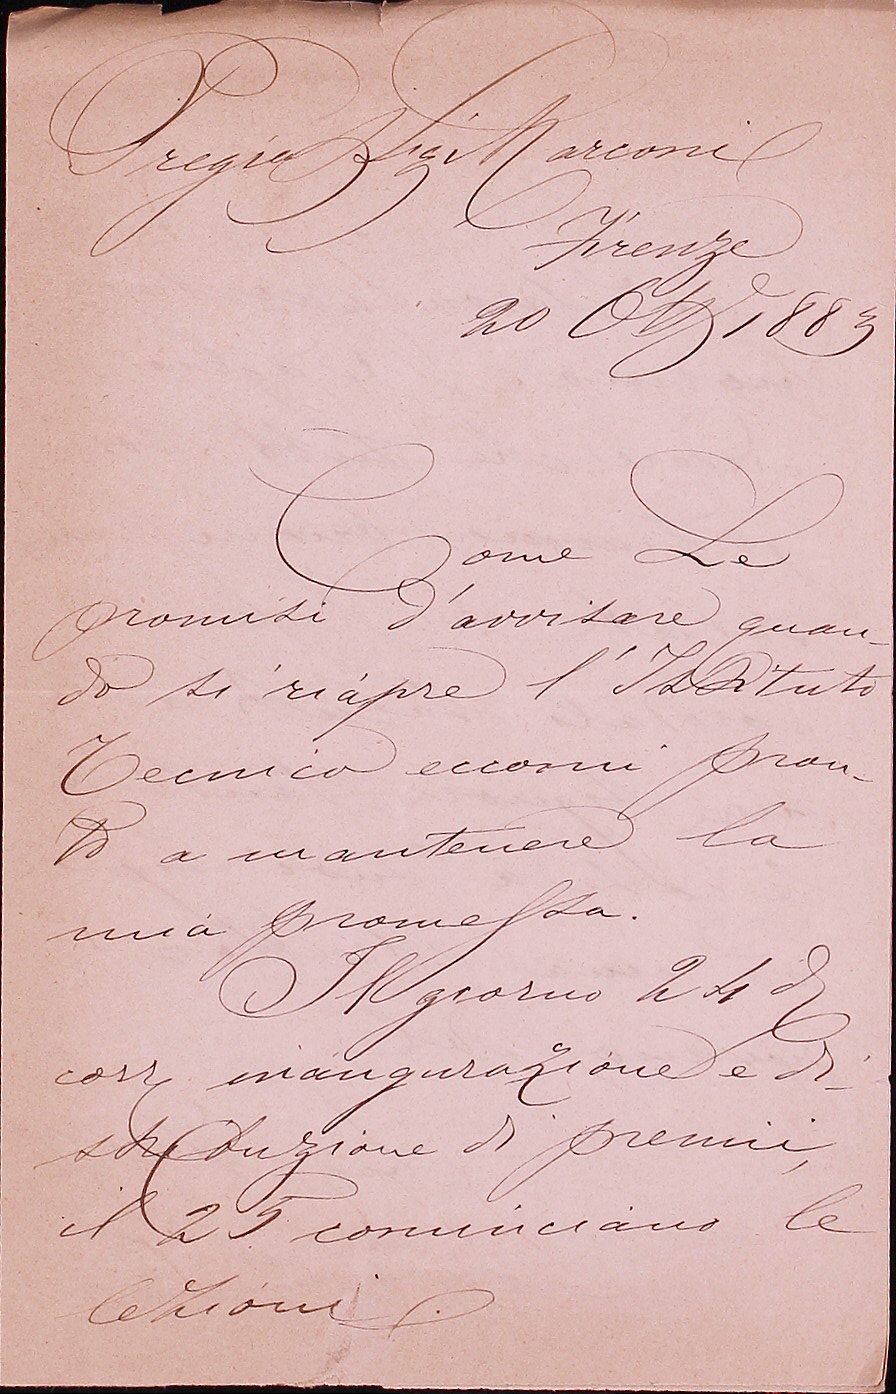 Pregio Sigr Marconi
Firenze
20 Ott 1883
Come Le
promisi d'avvisare quan-
do si riapre l'Istituto
Tecnico eccomi pron-
to a mantenere la
mia promessa.
Il giorno 24 di
corr inaugurazione e di-
stribuzione di premii,
il 25 cominciano le
lezioni.